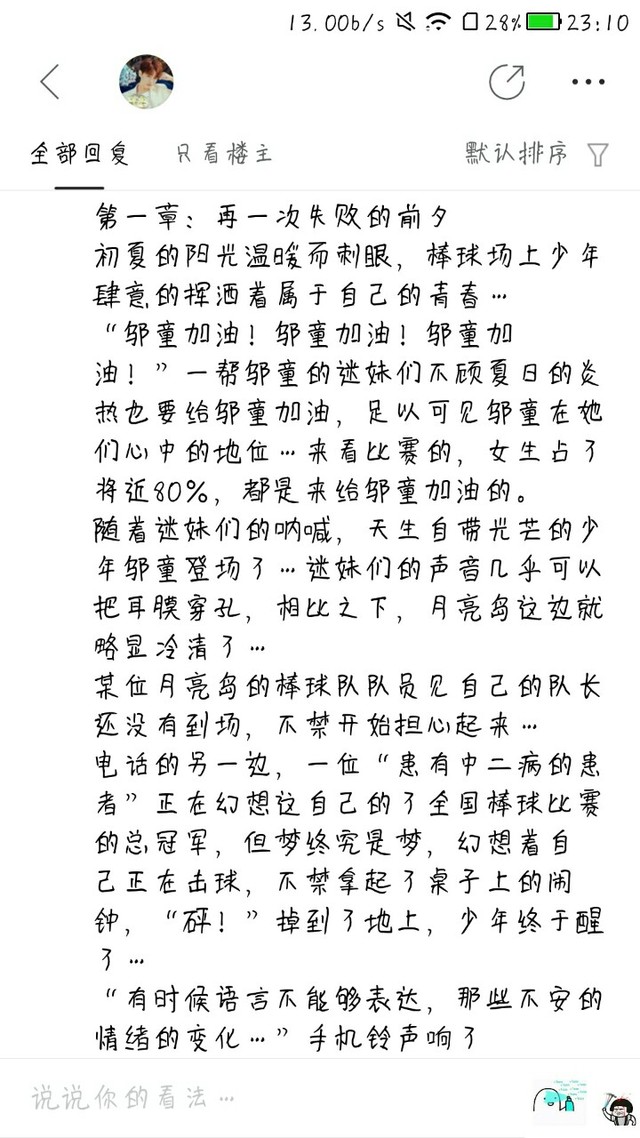 13.00b/s 28% 23:10
全部回复 只看楼主 默认排序
第一章：再一次失败的前夕
初夏的阳光温暖而刺眼，棒球场上少年
肆意的挥洒着属于自己的青春…
“邬童加油！邬童加油！邬童加
油！”一帮邬童的迷妹们不顾夏日的炎
热也要给邬童加油，足以可见邬童在她
们心中的地位…来看比赛的，女生占了
将近80%，都是来给邬童加油的。
随着迷妹们的呐喊，天生自带光芒的少
年邬童登场了…迷妹们的声音几乎可以
把耳膜穿孔，相比之下，月亮岛这边就
略显冷清了…
某位月亮岛的棒球队队员见自己的队长
还没有到场，不禁开始担心起来…
电话的另一边，一位“患有中二病的患
者”正在幻想这自己的了全国棒球比赛
的总冠军，但梦终究是梦，幻想着自
己正在击球，不禁拿起了桌子上的闹
钟，“砰！”掉到了地上，少年终于醒
了…
“有时候语言不能够表达，那些不安的
情绪的变化…”手机铃声响了
说说你的看法…